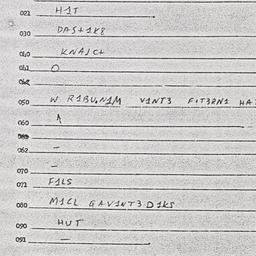 021 H1T
030 DAS+1K8
040 KNAJC+
041 O
042
050 W R1BU.N1M V1NT3 F+T3RN1 HA
060 A
062 –
070 –
071 F1LS
080 M1CL GAV1NT3 D1KS
090 HUT
091 –